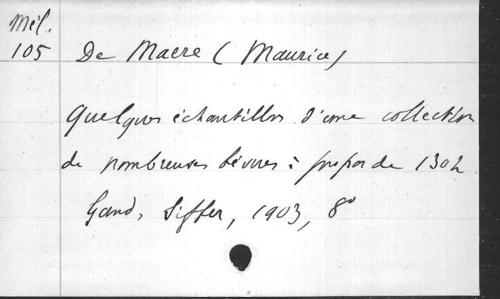 Mél.
105
De Maere (Maurice)
Quelques échantillons d'une collection
de nombreuses bévues à propos de 1302
Gand, Siffer, 1903, 8°